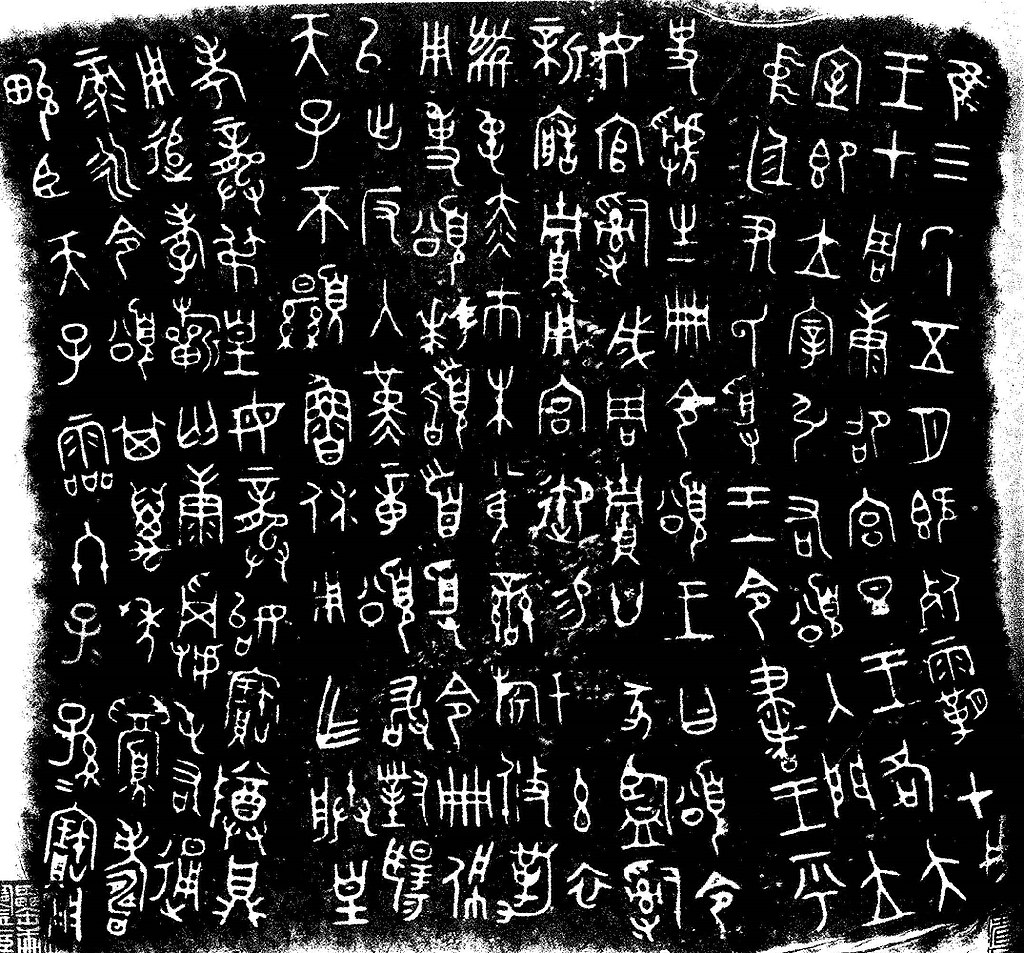 隹三年五月既死霸甲戌
王才周康卲宮旦王各大
室即立宰引右頌入門立
中廷尹氏受王令書王乎
史虢生冊令頌王曰頌令
女官𤔲成周貯廿家監𤔲
新寤貯用宮御易女玄衣
黹屯赤巿朱黃䜌旂攸勒
用事頌拜𩒨首受令冊佩
以出反入堇章頌敢對揚
天子不顯魯休用乍朕皇
考龔弔皇母龔姒寶尊鼎
用追孝祈匄康𩁹屯右通
彔永令頌其萬年眉壽
畯臣天子霝冬子孫寶用